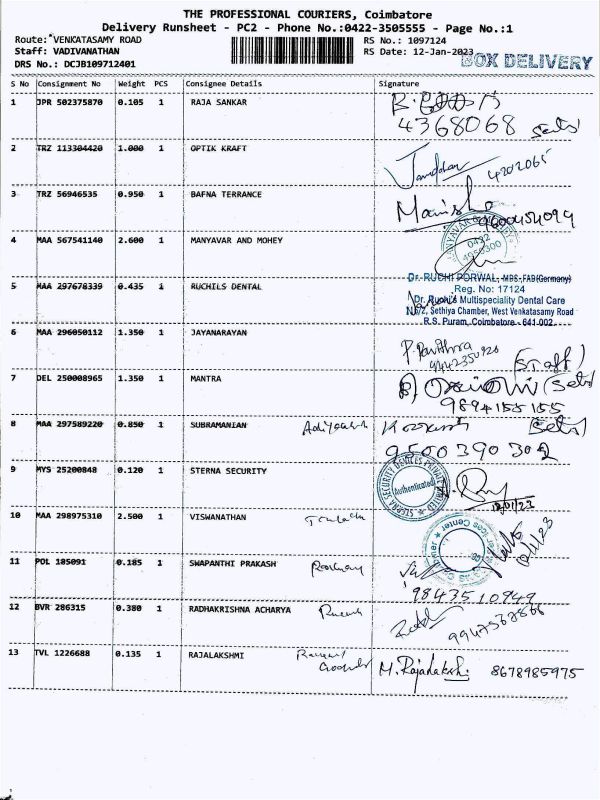 THE PROFESSIONAL COURIERS, Coimbatore
Delivery Runsheet - PC2 - Phone No.:0422-3505555 - Page No.:1
Route: VENKATASAMY ROAD
Staff: VADIVANATHAN
DRS No.: DCJB109712401
RS No.: 1097124
RS Date: 12-Jan-2023
BOX DELIVERY
S No Consignment No Weight PCS Consignee Details Signature
1 JPR 502375870 0.105 1 RAJA SANKAR
4368068
2 TRZ 113304420 1.000 1 OPTIK KRAFT 4202065
3 TRZ 56946535 0.950 1 BAFNA TERRANCE Manisha
4 MAA 567541140 2.600 1 MANYAVAR AND MOHEY
5 MAA 297678339 0.435 1 RUCHILS DENTAL
Dr. RUCHI PORWAL, MDS, FAD(Germany)
Reg. No: 17124
Dr. Ruchi's Multispeciality Dental Care
Sethiya Chamber, West Venkatasamy Road
R.S. Puram, Coimbatore - 641 002.
6 MAA 296050112 1.350 1 JAYANARAYAN P. Pavithra
(Staff)
7 DEL 250008965 1.350 1 MANTRA
9894155155
8 MAA 297589220 0.850 1 SUBRAMANIAN
9500390302
9 MYS 25200848 0.120 1 STERNA SECURITY
Authenticated
10 MAA 298975310 2.500 1 VISWANATHAN
11 POL 185091 0.185 1 SWAPANTHI PRAKASH
9843510949
12 BVR 286315 0.380 1 RADHAKRISHNA ACHARYA
13 TVL 1226688 0.135 1 RAJALAKSHMI M. Rajalakshi 8678985975